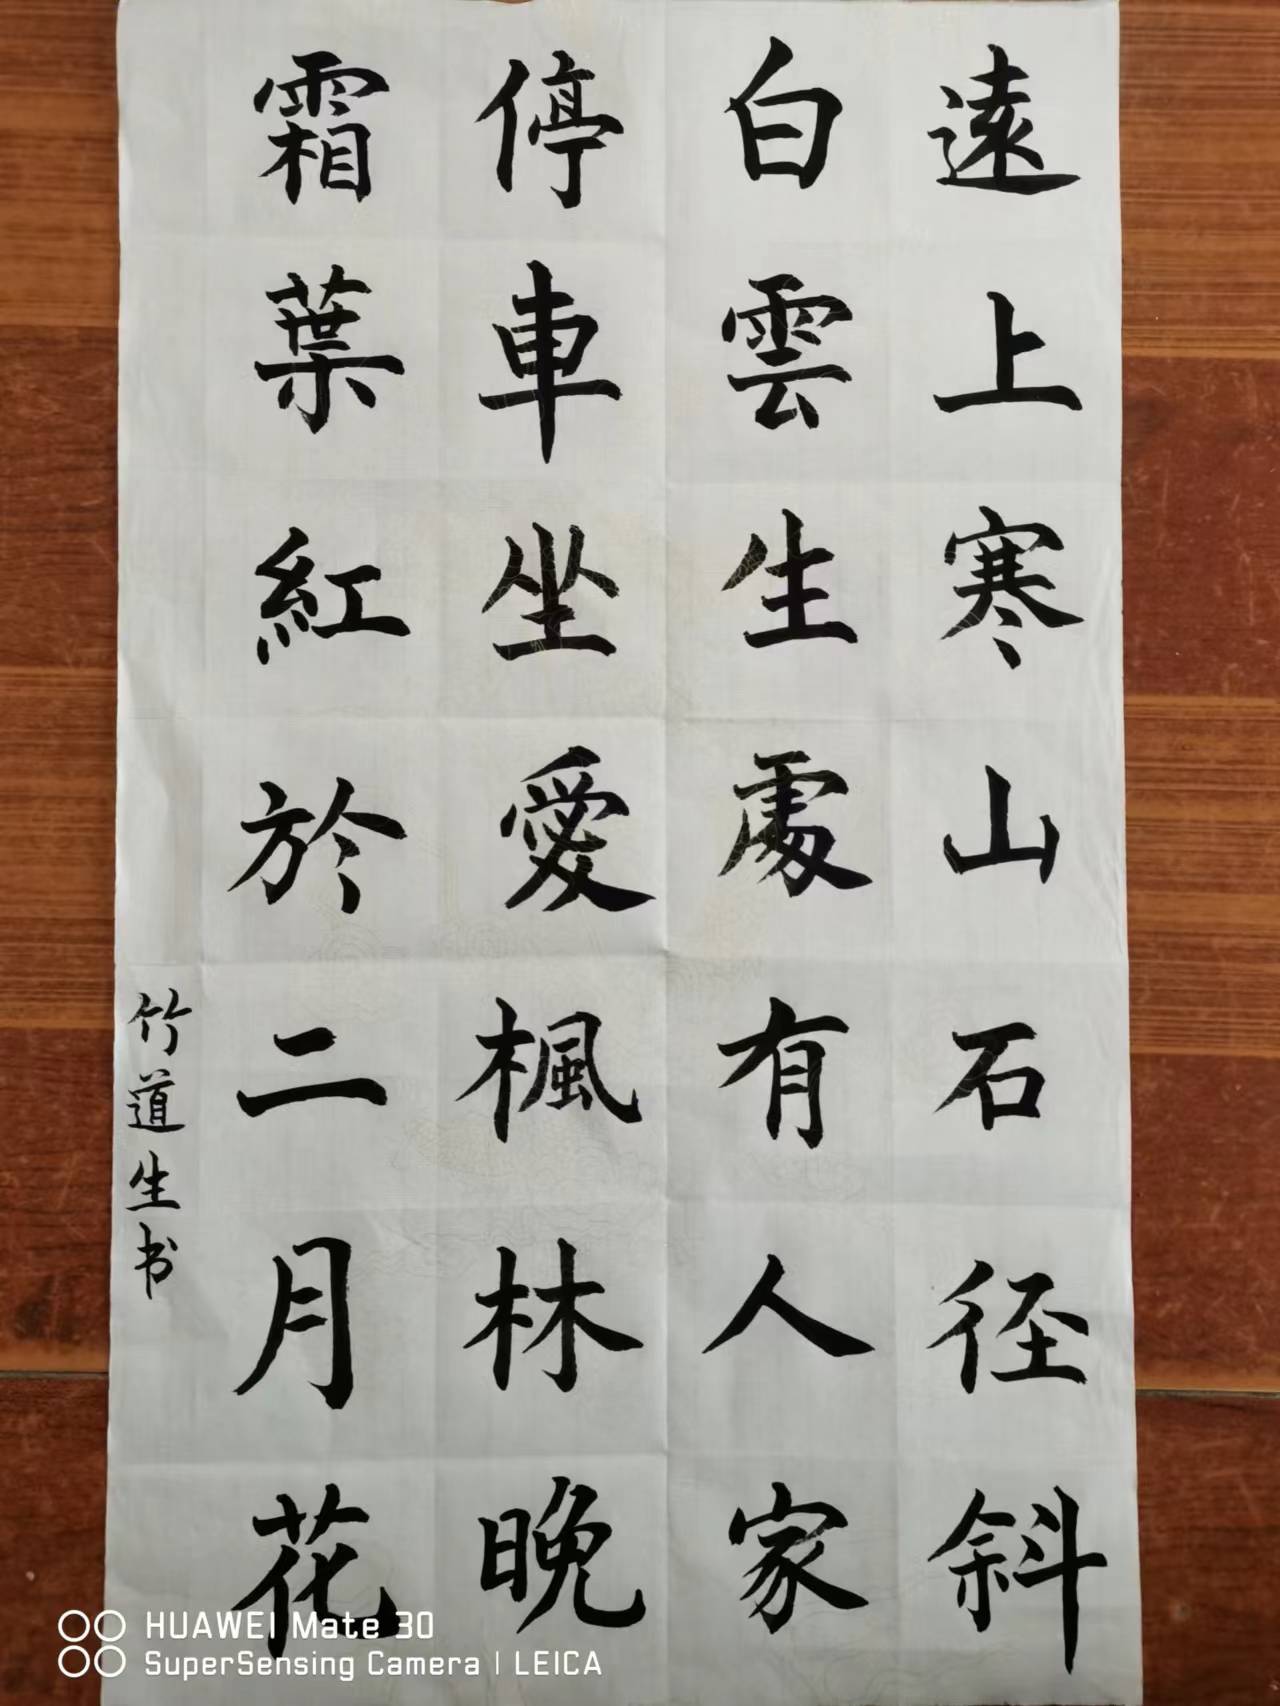 遠上寒山石径斜
白雲生處有人家
停車坐愛楓林晚
霜葉紅於二月花
竹道生书
HUAWEI Mate 30
SuperSensing Camera | LEICA